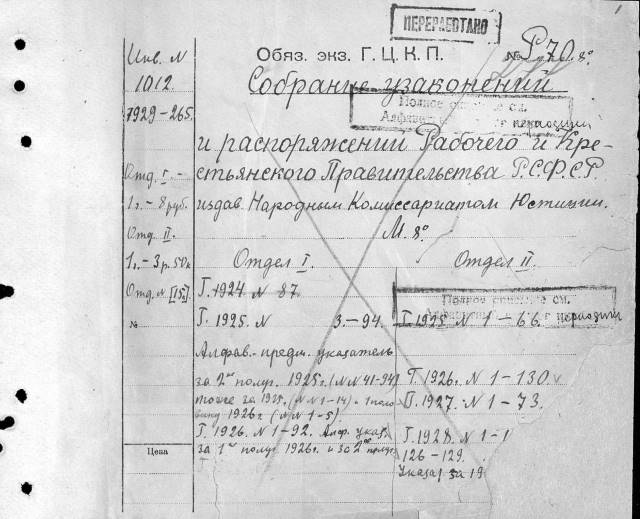 ПЕРЕРАБОТАНО
1
Инв. N
1012.
7929-265.
Отд. I. -
1 г. - 8 руб.
Отд. II.
1 г. - 3 р. 50 к
Отд. N [15].
№
Цена
Обяз. экз. Г.Ц.К.П.
№ Р70. 8°
Собрание узаконений
Полное описание см.
и распоряжении Рабочего и Кре-
стьянского Правительства Р.С.Ф.С.Р
издав. Народным Комиссариатом Юстиции.
М. 8°.
Отдел I.
Г. 1924. N 87.
Г. 1925. N 3.-94.
Алфав.-предм. указатель
за 2ое полуг. 1925 г. (N N 41-94)
тоже за 1925. (N N 1-14) 1 поло
вину 1926 г. (N N 1-5)
Г. 1926. N 1-92. Алф. указ.
за 1ое полуг. 1926 г. и за 2ое полуг.
Отдел II.
Полное описание см.
Г. 1925. N 1-66. периодики
Г. 1926. N 1-130.
Г. 1927. N 1-73.
Г. 1928. N 1-1
126-129.
Указ. за 19